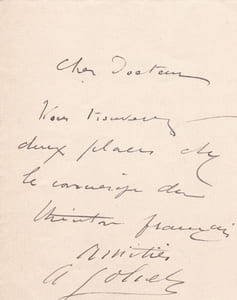 Cher Docteur
Vous trouverez
deux places chez
le concierge du
Théâtre français
Amitiés